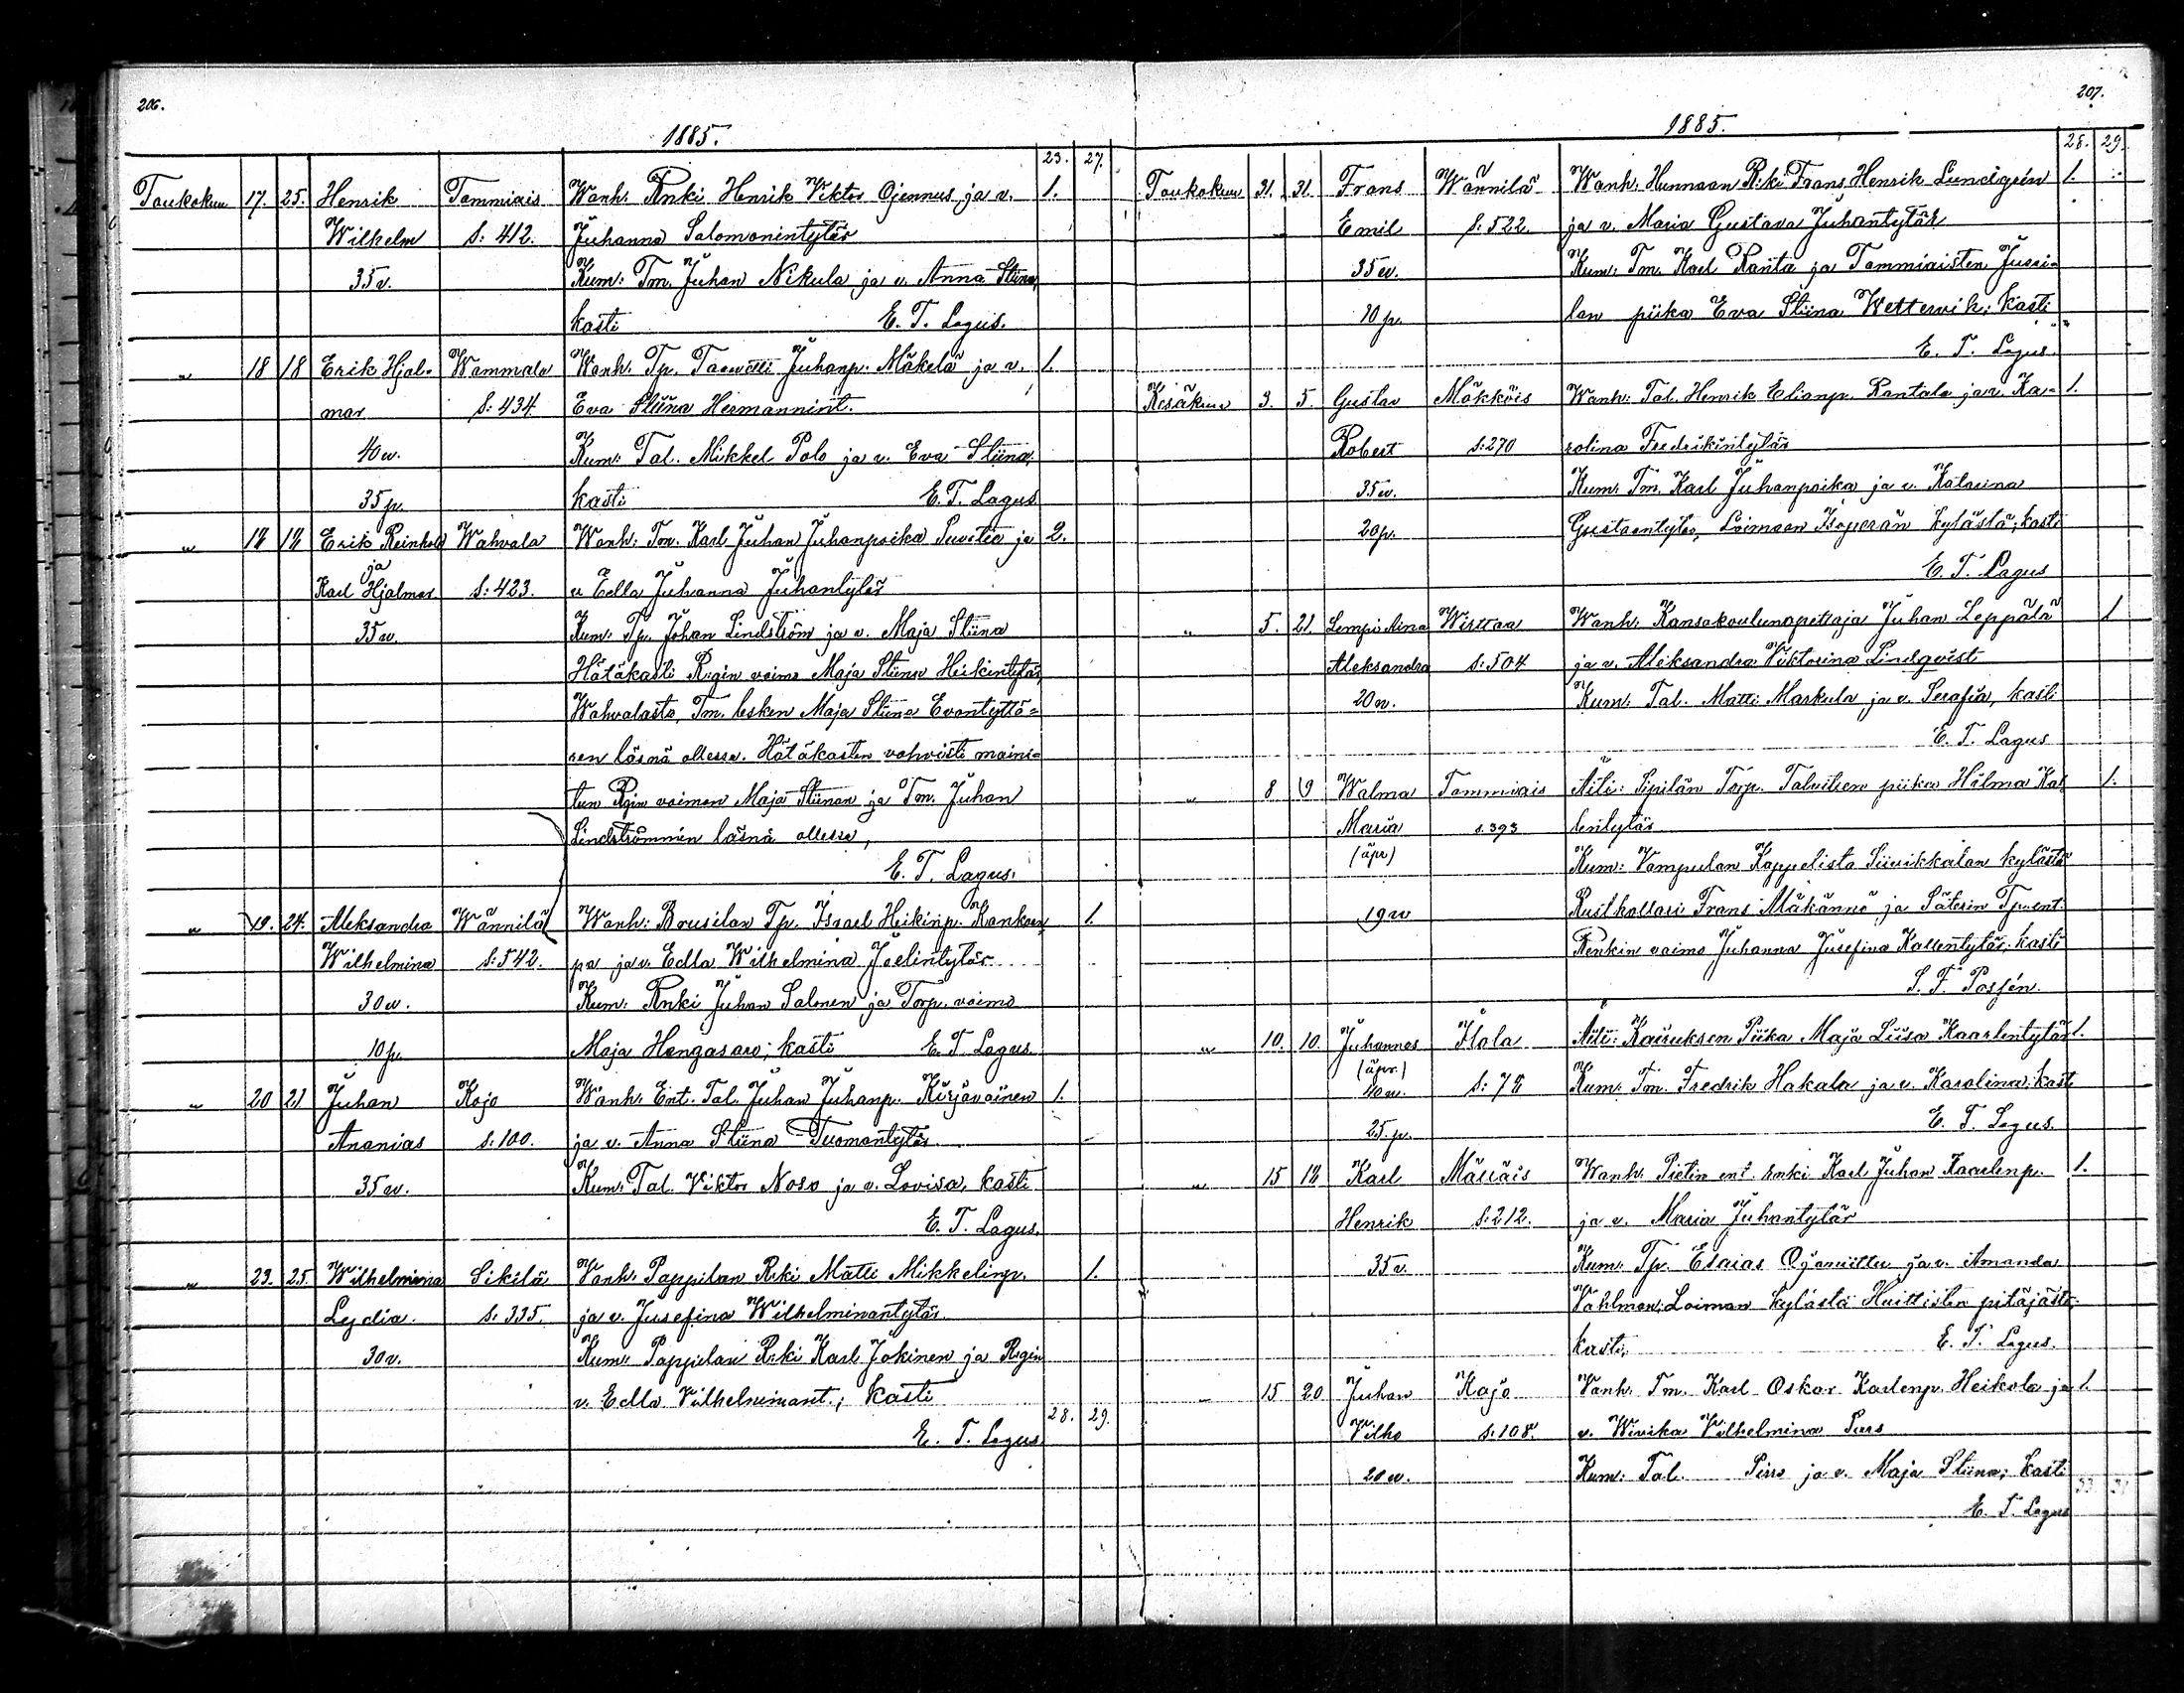 206.
1885.
23. 27.
Toukokuu 17. 25. Henrik Tammiais Wanh: Rnki Henrik Viktor Ojennus ja v. 1.
Wilhelm S: 412. Juhanna Salomonintytär
35 v. Kum: Tm. Juhan Nikula ja v. Anna Stiina,
kasti E. T. Lagus.
" 18 18 Erik Hjal- Wammala Wanh. Tp. Taavetti Juhanp. Mäkelä ja v. 1.
mar S: 434 Eva Stiina Hermannint.
40 v. Kum: Tal. Mikkel Polo ja v. Eva Stiina,
35 p. kasti E. T. Lagus
" 18 18 Erik Reinhold Wahvala Wanh: Tm. Karl Juhan Juhanpoika ja 2.
ja
Karl Hjalmar S: 423. v. Edla Juhanna Juhantytär
35 v. Kum: Tp. Johan Lindström ja v. Maja Stiina
Hätäkasti R:gin vaimo Maja Stiina Heikintytär,
Wahvalasta, Tm. lesken Maja Stiina Evantyttä-
ren läsnä ollessa. Hätäkasten vahvisti maini-
tun Rgin vaimon Maja Stiinan ja Tm. Juhan
Lindströmmin läsnä ollessa,
E. T. Lagus.
" 19. 24. Aleksandra Wännilä Wanh: Brusilan Tp. Israel Heikinp. Kankaan 1.
Wilhelmina S: 542. pa ja v. Edla Wilhelmina Joelintytär
30 v. Kum: Rnki Juhan Salonen ja Torp. vaimo
10 p. Maja Hongasaro; kasti E. T. Lagus
" 20 21 Juhan Kojo Wanh: Ent. Tal. Juhan Juhanp. Kirjavainen 1.
Ananias S: 100. ja v. Anna Stiina Tuomantytär
35 v. Kum: Tal. Viktor Noso ja v. Lovisa, kasti
E. T. Lagus.
" 23. 25. Wilhelmina Sikilä Vanh. Pappilan R:ki Matti Mikkelinp. 1.
Lydia. S: 335. ja v. Jusefina Wilhelminantytär
30 v. Kum: Pappilan R:ki Karl Jokinen ja Rgin
v. Edla Vilhelminant.; kasti
28. 29.
E. T. Lagus.
207.
1885.
28. 29.
Toukokuu 31. 31. Frans Wännilä Wanh: Hunnaan R:ki Frans Henrik Lundgrén 1.
Emil S: 522. ja v. Maria Gustava Juhantytär
35 v. Kum: Tm. Karl Ranta ja Tammiaisten Jussi-
10 p. lan piika Eva Stiina Wettervik; kasti
E. T. Lagus.
Kesäkuu 3. 5. Gustav Mäkköis Wanh: Tal. Henrik Elianp. Rantala ja v. Ka- 1.
Robert S: 270 rolina Fredrikintytär
35 v. Kum: Tm. Karl Juhanpoika ja v. Katarina
20 p. Gustaantytär, Loimaan Isoperän kylästä; kasti
E. T. Lagus
" 5. 21. Lempi Aina Wirttaa Wanh: Kansakoulunopettaja Juhan Leppälä 1
Aleksandra S: 504 ja v. Aleksandra Viktorina Lindqvist
20 v. Kum: Tal. Matti Markula ja v. Serafia, kasti
E. T. Lagus
" 8 9 Walma Tammiais Äiti: Sipilän Torp. Talvitien piika Hilma Kal 1.
Maria S. 393 lentytär
(äpr) Kum: Vampulan Kappelista Siivikkalan kylästä
19 v Rustkollari Frans Mäkänne ja Säterin Tp. ent.
Renkin vaimo Juhanna Jusefina Kallentytär; kasti
S. F. Posfén.
" 10. 10. Juhannes Ilola Äiti: Kairuksen Piika Maja Liisa Kaarlentytär 1.
(äpr.)
40 v. S: 78 Kum: Tm. Fredrik Hakala ja v. Karolina; kasti
25 p. E. T. Lagus.
" 15 18 Karl Mällais Wanh: Pietin ent. renki Karl Juhan Kaarlenp. 1.
Henrik S: 212. ja v. Maria Juhantytär
35 v. Kum: Tp. Esaias Ojaniittu ja v. Amanda
Vahlman; Loiman kylästä Huittisten pitäjästä
kasti, E. T. Lagus.
" 15 20 Juhan Kojo Vanh. Tm. Karl Oskar Karlenp. Heikola ja 1.
Vilho S: 108. v. Wivika Vilhelmina Pars
20 v. Kum: Tal. Pirro ja v. Maja Stiina; kasti
E. T. Lagus